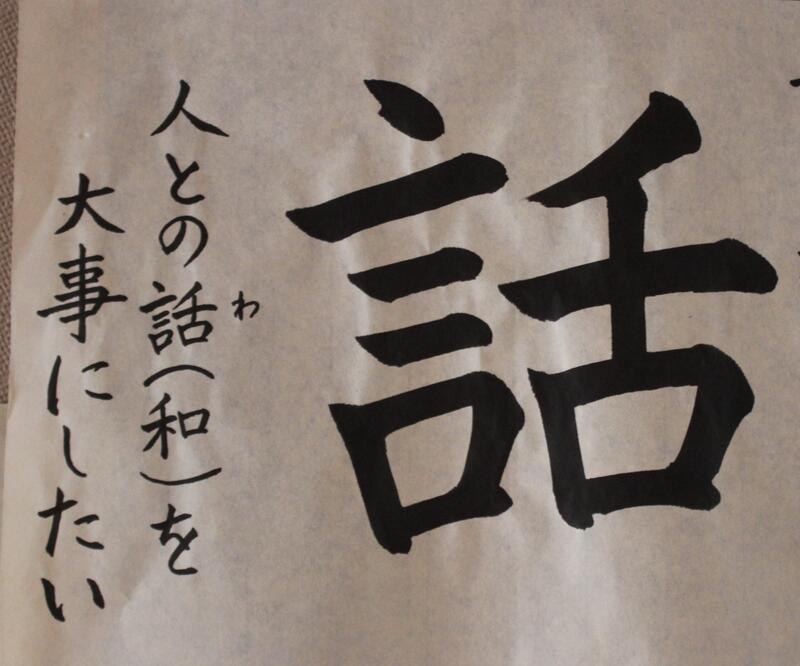 話
人との話(和)を
わ
大事にしたい